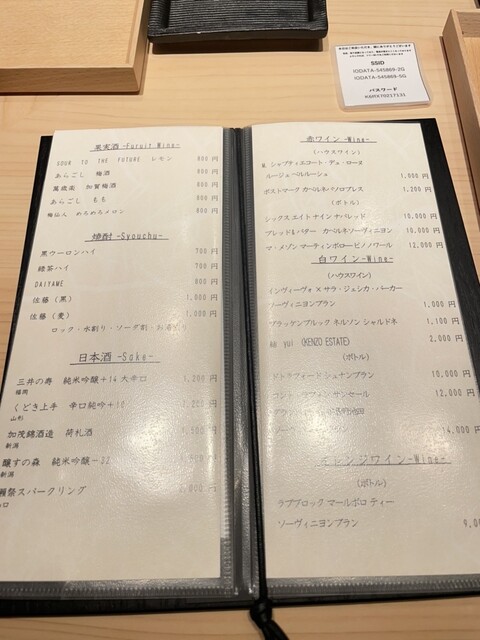 SSID
IODATA-545869-2G
IODATA-545869-5G
パスワード
果実酒 -Furuit Wine-
SOUR TO THE FUTURE レモン 800 円
あらごし 梅酒 800 円
萬歳楽 加賀梅酒 800 円
あらごし もも 800 円
梅仙人 めろめろメロン 800 円
焼酎 -Syouchu-
黒ウーロンハイ 700 円
緑茶ハイ 700 円
DAIYAME 800 円
佐藤 (黒) 1,000 円
佐藤 (麦) 1,000 円
ロック・水割り・ソーダ割・お湯割り
日本酒 -Sake-
三井の寿 純米吟醸+14 大辛口 1,200 円
福岡
くどき上手 辛口純吟+10
山形
加茂錦酒造 荷札酒
新潟
醸す森 純米吟醸-22
新潟
祭スパークリング
赤ワイン -Wine-
(ハウスワイン)
M. シャプティエコート・デュ・ローヌ
ルージュールルーシュ 1,000 円
ポストマーク カベルネパソロブレス 1,200 円
(ボトル)
シックス エイト ナイン ナパレッド 10,000 円
ブレッド&バター カベルネソーヴィニヨン 10,000 円
マ・メゾン マーティンボロー ピノノワール 12,000 円
白ワイン -Wine-
(ハウスワイン)
インヴィーヴォ × サラ・ジェシカ・パーカー
ソーヴィニヨンブラン 1,000 円
ブラッケンブルック ネルソン シャルドネ 1,100 円
yui (KENZO ESTATE) 2,000 円
(ボトル)
ドトラフィード シュナンブラン 10,000 円
サンセール 12,000 円
14,000 円
オレンジワイン -Wine-
(ボトル)
ラブブロック マールボロ ティー
ソーヴィニヨンブラン 9,0